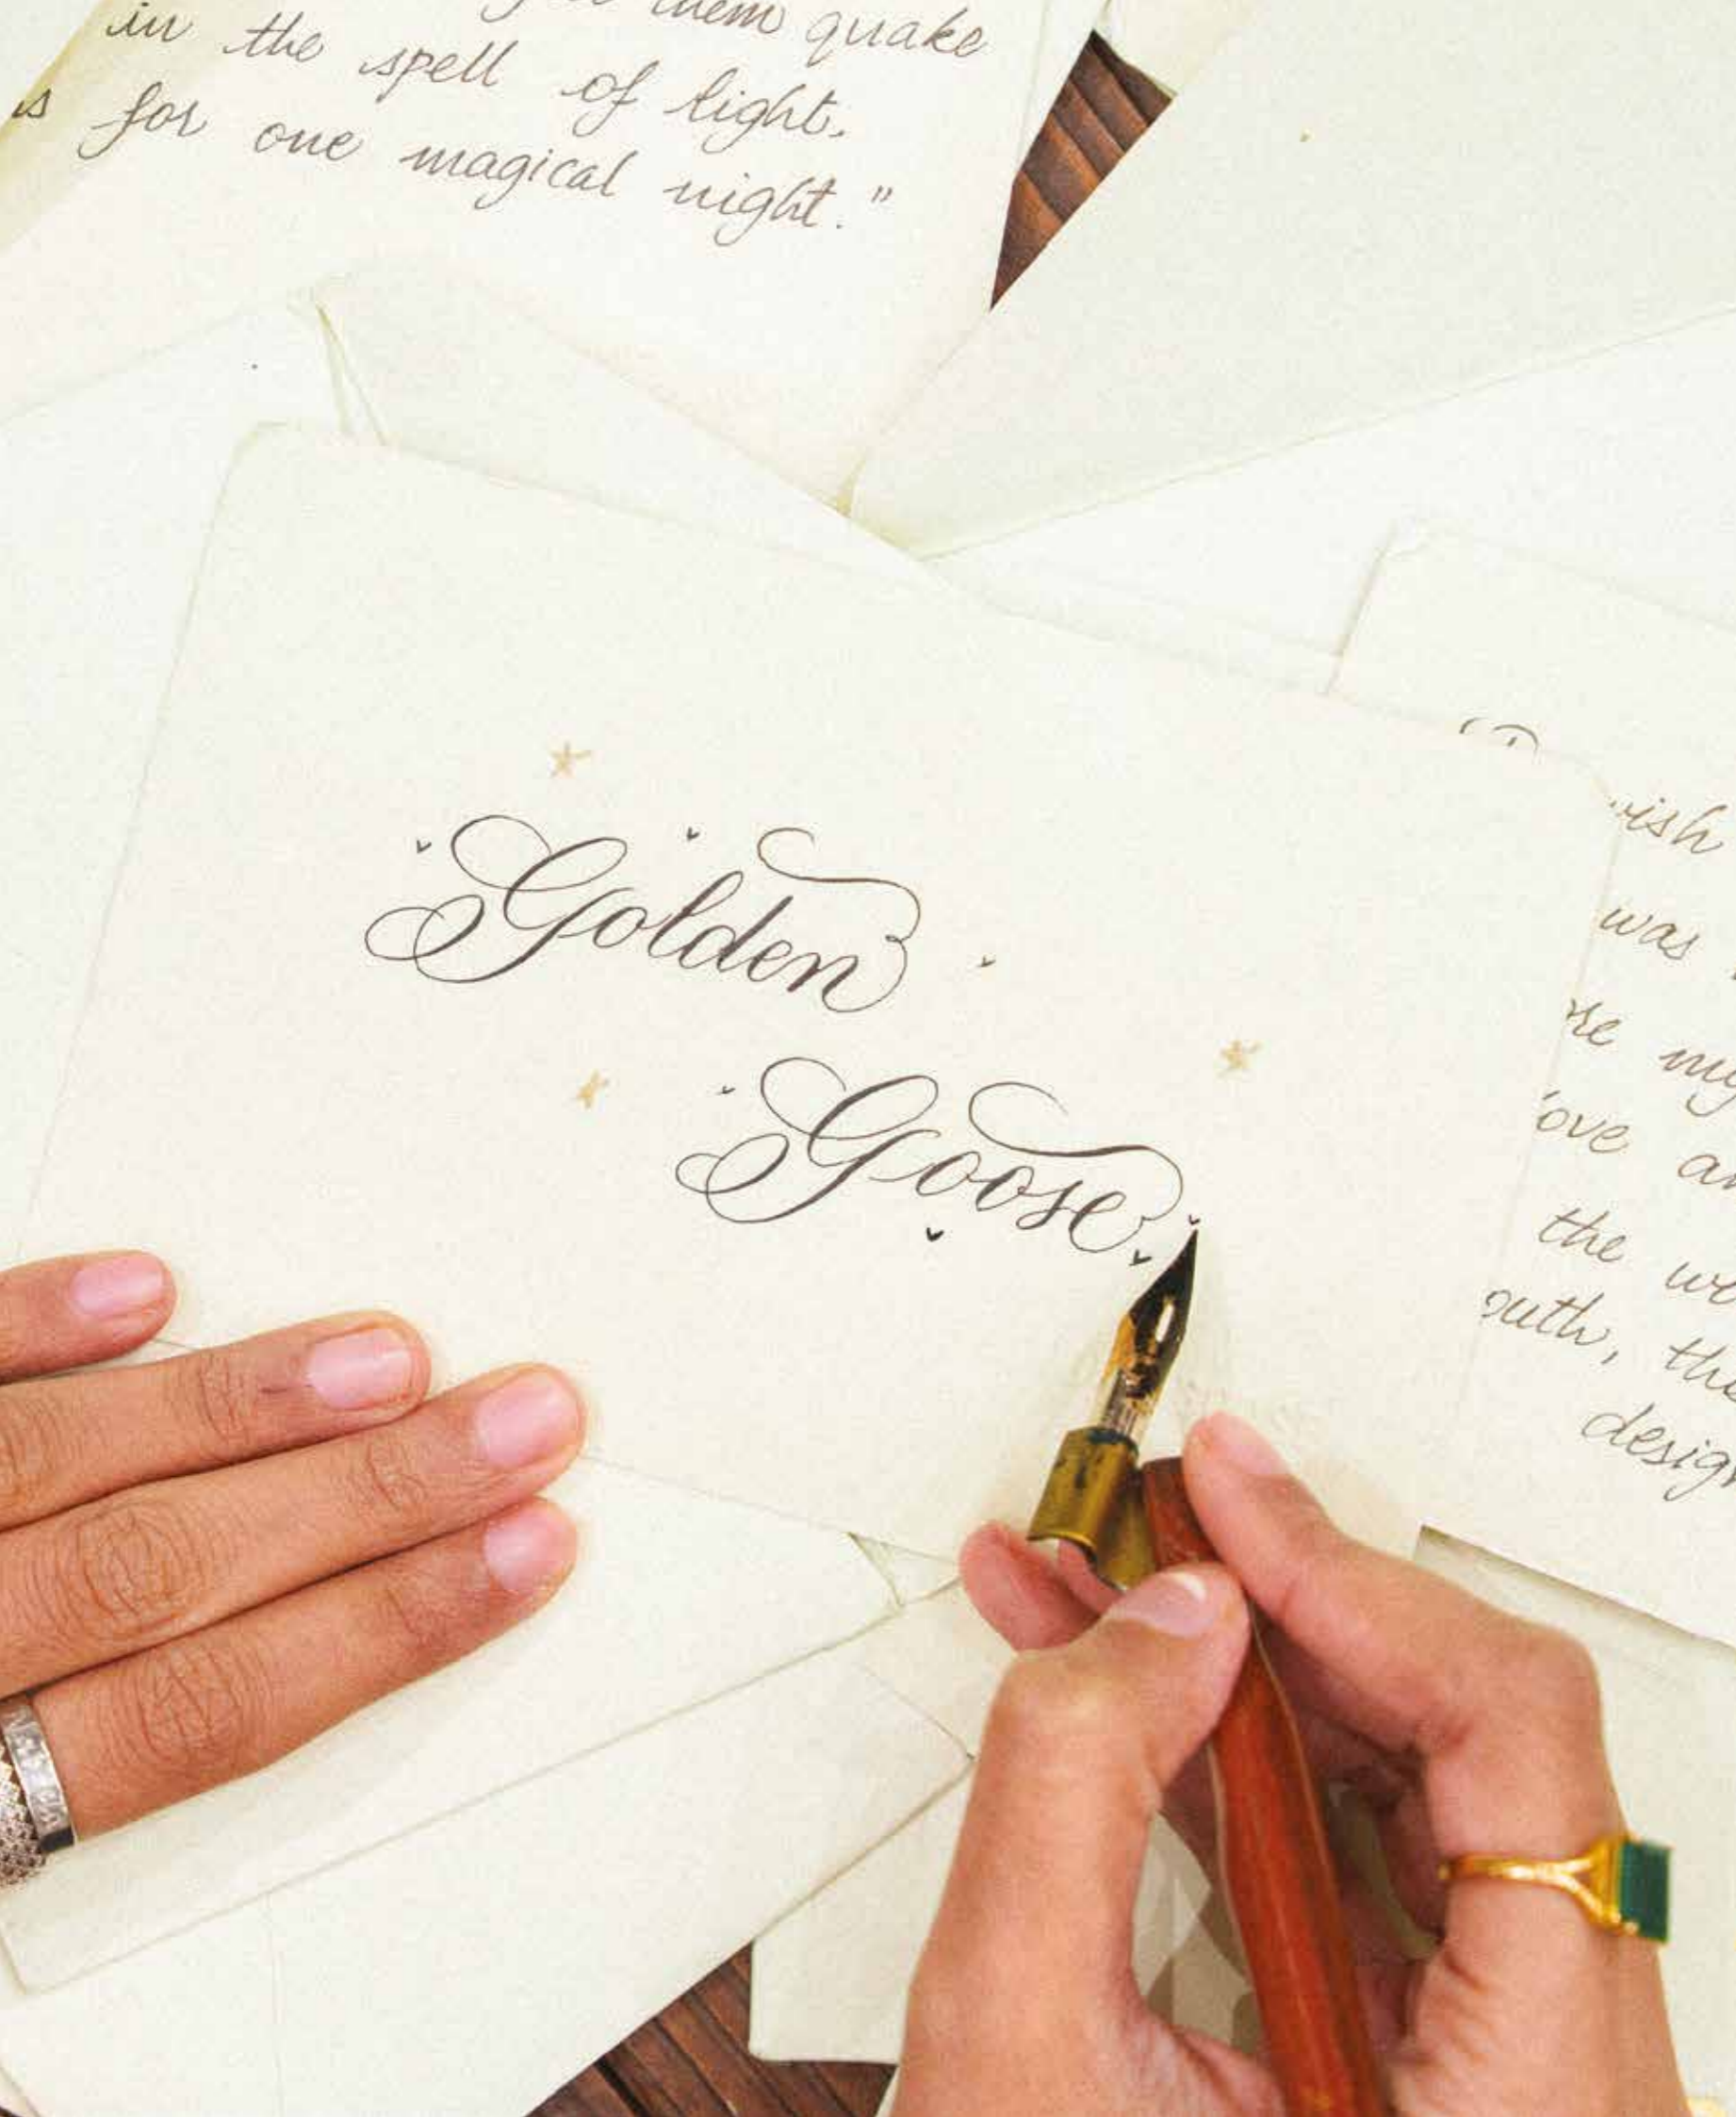 them quake
in the spell of light.
for one magical night."
Golden
Goose
wish
was
my
the
the